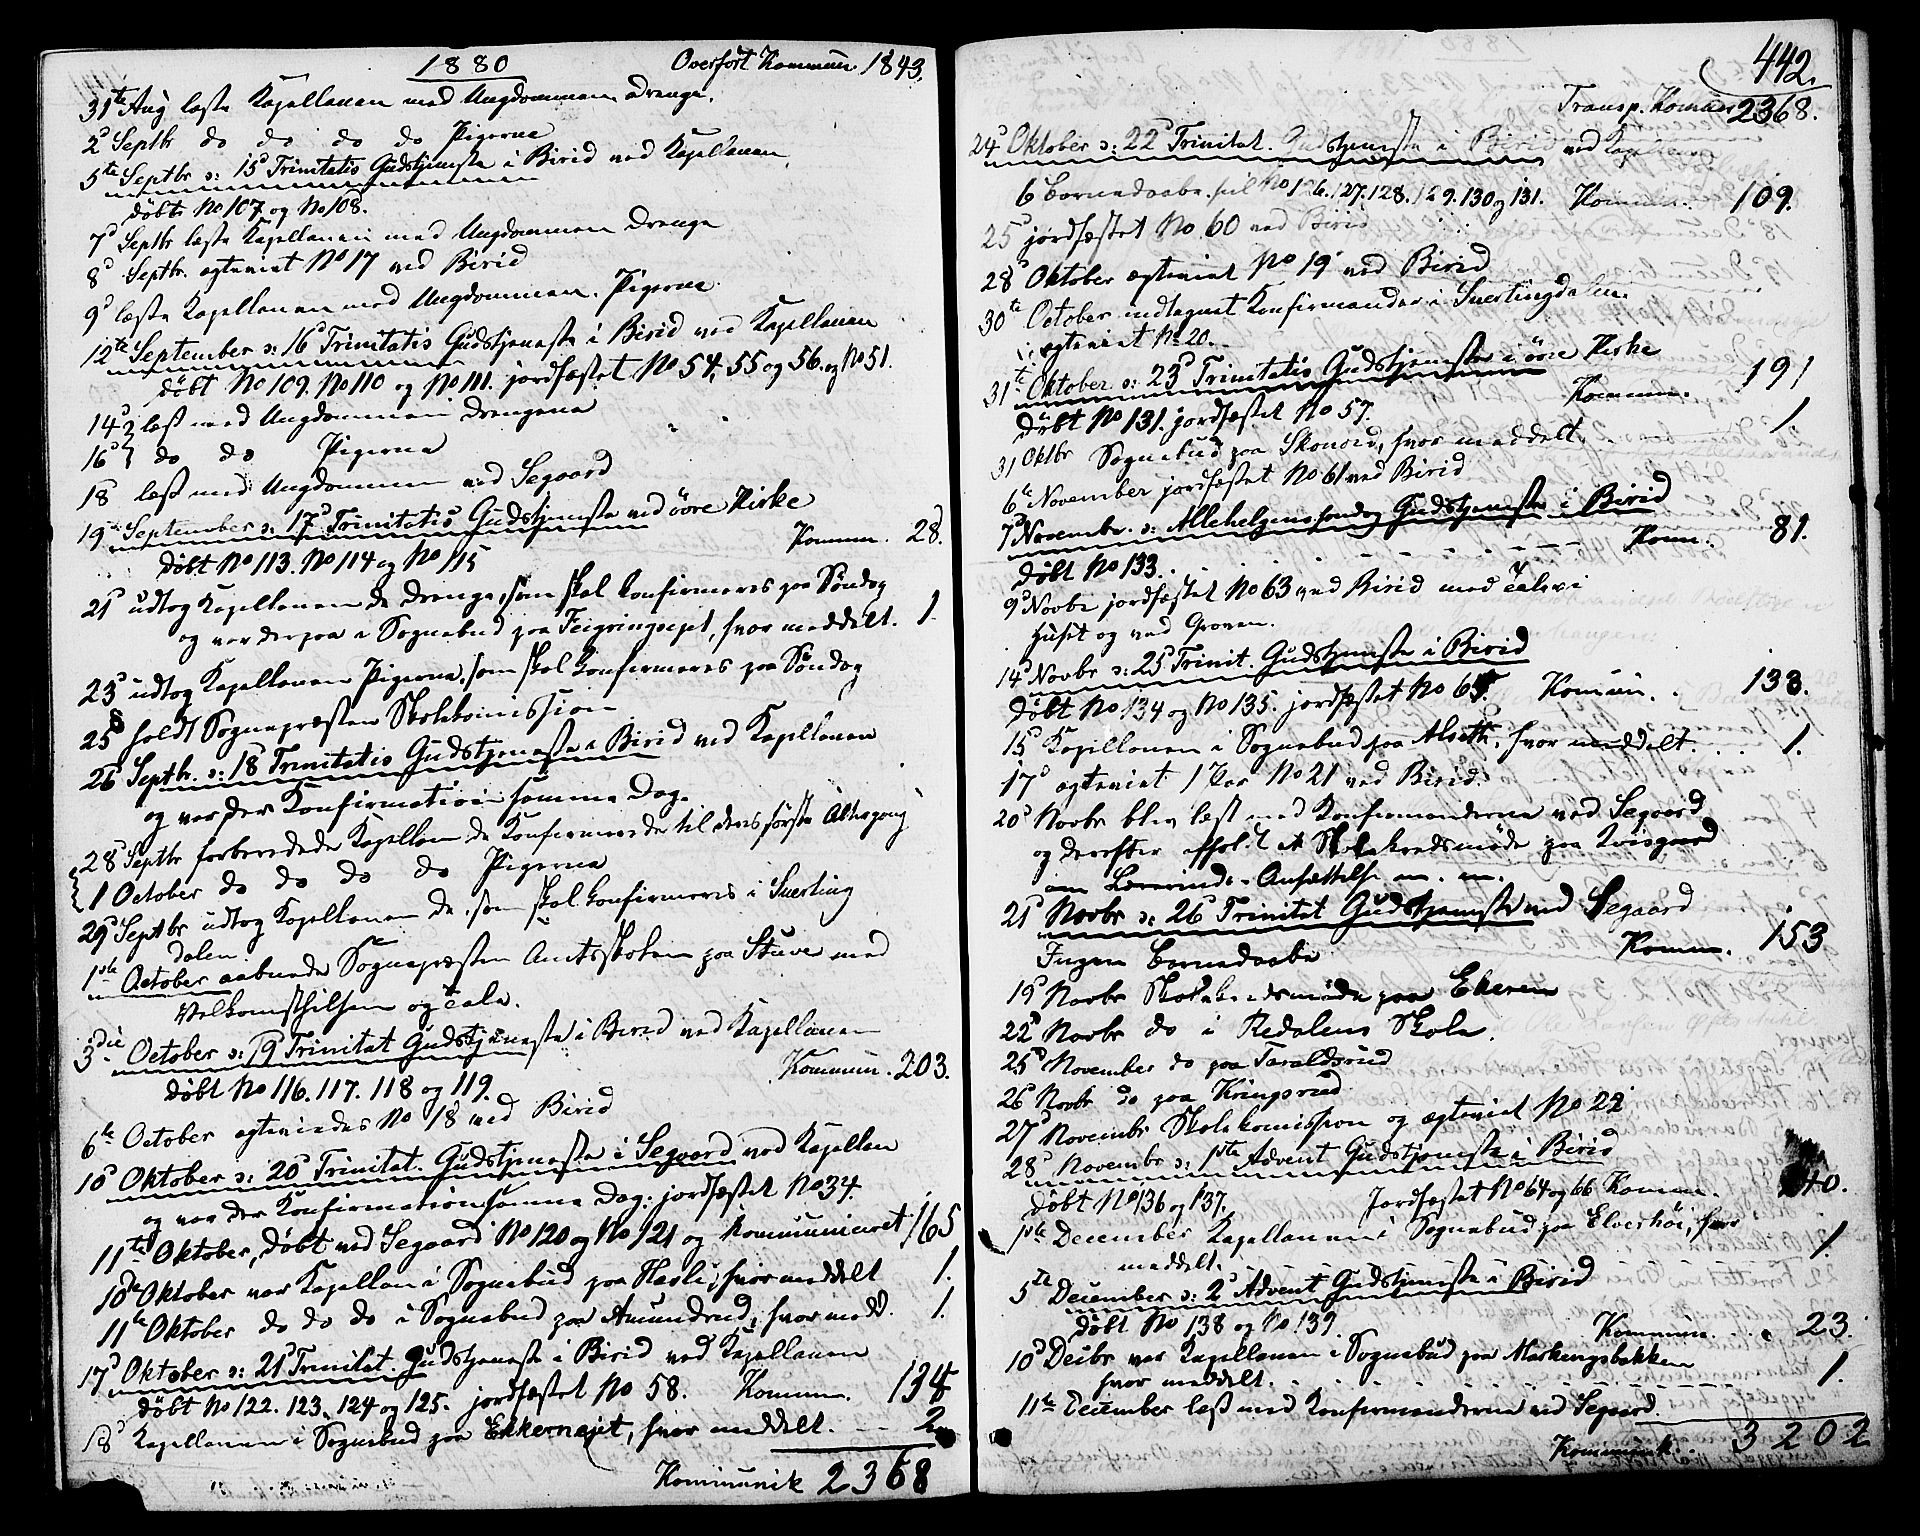 1880
Overført Kommun. 1843.
31te Aug læste Kapellanen med Ungdommen Drenge.
2d Septbr do do do do Pigerne
5te Septbr ɔ: 15d Trinitatis Gudstjeneste i Birid ved Kapellanen.
døbt No 107 og No 108.
7d Septbr læste Kapellanen med Ungdommen Drenge
8d Septbr. egteviet No 17 ved Birid
9d læste Kapellanen med Ungdommen. Pigerne
12te September ɔ: 16d Trinitatis Gudstjeneste i Birid ved Kapellanen
døbt No 109. No 110 og No 111. jordfæstet No 54, 55 og 56. og No 51.
14d læst med Ungdommen Drengene
16d do do Pigerne
18 læst med Ungdommen ved Segaard
19 September ɔ: 17d Trinitatis Gudstjeneste ved övre Kirke
Kommun. 28.
Døbt No 113. No 114 og No 115
21d udtog Kapellanen de Drenge, som skal konfirmeres paa Søndag
og var derpaa i Sognebud paa Feigringsejet, hvor meddelt. 1.
23d udtog Kapellanen Pigerne, som skal konfirmeres paa Søndag
25d holdt Sognepræsten Skolekomission
26d Septbr. ɔ: 18d Trinitatis Gudstjeneste i Birid ved Kapellanen
og var der Konfirmation samme Dag.
28d Septbr forberedede Kapellan de Konfirmerede til deres første Altergang
1 October do do do do Pigerne
29d Septbr udtog Kapellanen de, som skal konfirmeres i Snerting
dalen
1ste October aabnede Sognepræsten Amtsskolen paa Stuve med
Velkomsthilsen og Tale.
3die October ɔ: 19 Trinitat Gudstjeneste i Birid ved Kapellanen
Kommun. 203.
døbt No 116. 117. 118 og 119.
6te October egteviedes No 18 ved Birid
10d Oktober ɔ: 20d Trinitat. Gudstjeneste i Segaard ved Kapellan
og var der Konfirmation samme Dag. jordfæstet No 34.
11te Oktober, døbt ved Segaard No 120 og No 121 og kommuniceret 165
10de Oktober var Kapellan i Sognebud paa Hasli, hvor meddelt 1.
11te Oktober do do do i Sognebud paa Amundrud, hvor medd. 1.
17d Oktober ɔ: 21d Trinitat. Gudstjeneste i Birid ved Kapellanen
døbt No 122. 123. 124 og 125. jordfæstet No 58. Kommun. 134
18d Kapellanen i Sognebud paa Ekkernejet, hvor meddelt. -- 2
Kommunik 2368
442.
Transp. Komun 2368.
24d Oktober ɔ: 22d Trinitat. Gudstjeneste i Birid ved Kapellanen
6 Barnedaabe til No 126. 127. 128. 129. 130 og 131. Kommun. 109.
25d jordfæstet No 60 ved Birid
28d Oktober egteviet No 19 ved Birid
30te October indtegnet Konfirmander i Snertingdalen
egteviet No 20.
31te Oktober ɔ: 23d Trinitatis Gudstjeneste i övre Kirke
Kommun. 191
døbt No 131. jordfæstet No 57.
31 Oktbr Sognebud paa Skonord, hvor meddelt 1.
6te November jordfæstet No 61 ved Birid
7d Novembr. ɔ: Allehelgenssøndag Gudstjeneste i Birid
Komm. 81.
døbt No 133.
9d Novbr jordfæstet No 63 ved Birid med Tale i
Huset og ved Graven.
14d Novbr ɔ: 25d Trinit. Gudstjeneste i Birid
døbt No 134 og No 135. jordfæstet No 65. Komun. 133.
15d Kapellanen i Sognebud paa Alseth, hvor meddelt. . . . 1.
17d egteviet 1 Par No 21 ved Birid.
20d Novbr blev læst med Konfirmanderne ved Segaard
og derefter afholdt et Skolekredsmöde paa Kvisgaard
om Lærerinde-Ansættelse m. m.
21d Novbr ɔ: 26d Trinitat Gudstjeneste ved Segaard
Ingen Barnedaabe Komun. 153
19d Novbr Skolekredsmøde paa Ekeren
22d Novbr do i Redalens Skole.
25d November do paa Taraldsrud
26d Novbr do paa Kringsrud
27d Novembr Skolekomission og egteviet No 22
28d Novembr ɔ: 1ste Advent Gudstjeneste i Birid
døbt No 136 og 137. Jordfæstet No 64 og 66 Komun. 40.
1ste December Kapellanen i Sognebud paa Elverhöi, hvor
meddelt. 1.
5te December ɔ: 2d Advent Gudstjeneste i Birid
døbt No 138 og No 139. Kommun. . . . 23.
10d Decbr var Kapellanen i Sognebud paa Markengsbakken
hvor meddelt. 1.
11te December læst med Konfirmanderne ved Segaard.
Kommunik. . 3202